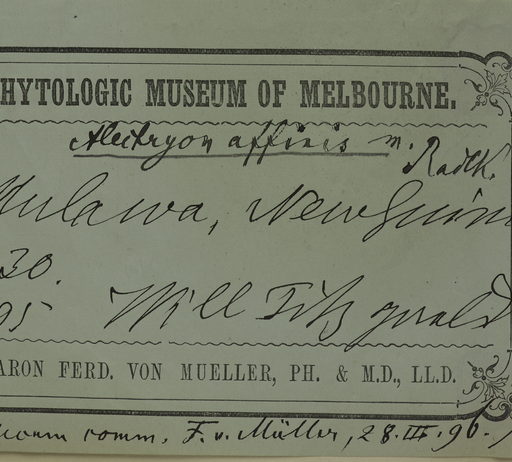 HYTOLOGIC MUSEUM OF MELBOURNE.
Alectryon affinis m. Radlk.
Mulawa, New Guin
30.
95 Will Fitzgerald
ARON FERD. VON MUELLER, PH. & M.D., LL.D.
comm. F. v. Müller, 28. III. 96.